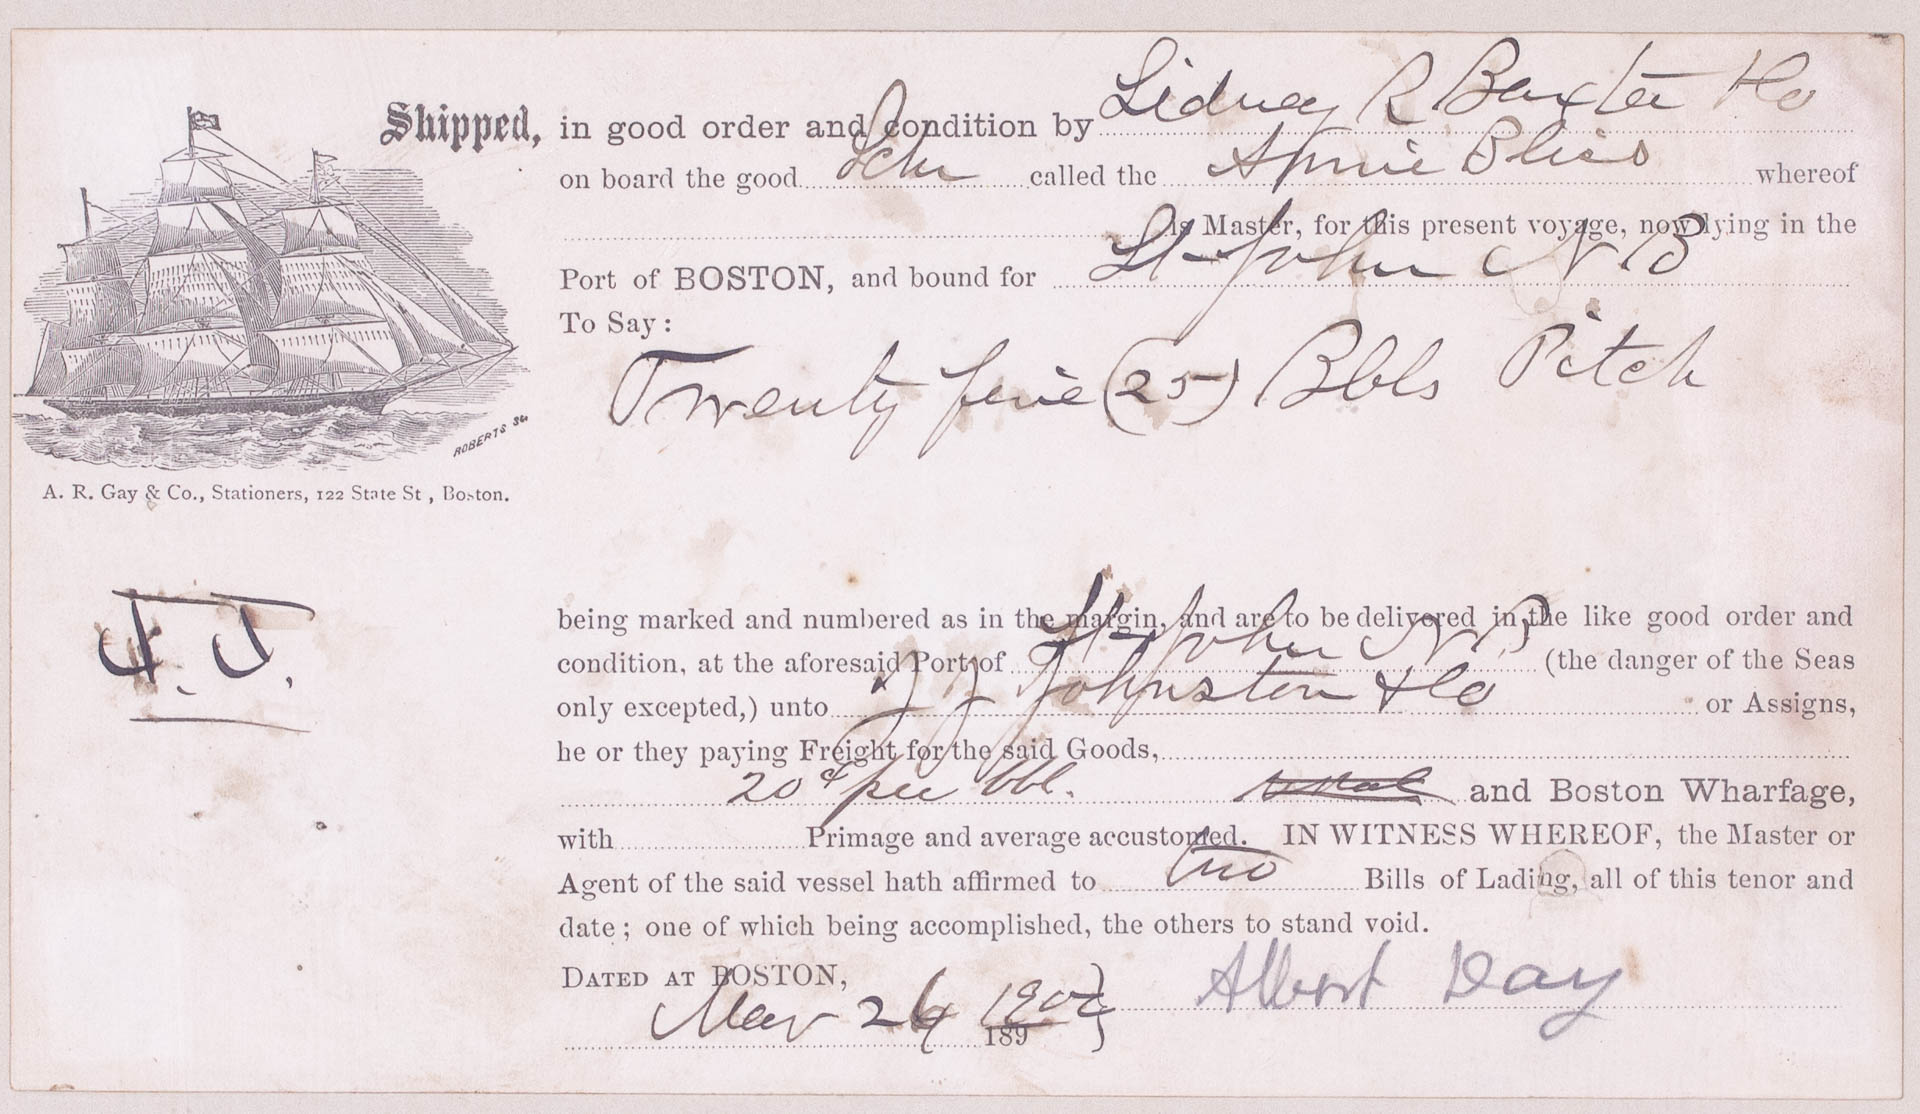 Shipped, in good order and condition by Sidney R Baxter & Co
on board the good Schr called the Annie Bliss whereof
is Master, for this present voyage, now lying in the
Port of BOSTON, and bound for St John N B
To Say:
Twenty five (25) Bbls Pitch
ROBERTS SC
A. R. Gay & Co., Stationers, 122 State St, Boston.
J. J.
being marked and numbered as in the margin, and are to be delivered in the like good order and
condition, at the aforesaid Port of St John N B (the danger of the Seas
only excepted,) unto J J Johnston & Co or Assigns,
he or they paying Freight for the said Goods,
20¢ per bbl. and Boston Wharfage,
with Primage and average accustomed. IN WITNESS WHEREOF, the Master or
Agent of the said vessel hath affirmed to two Bills of Lading, all of this tenor and
date; one of which being accomplished, the others to stand void.
DATED AT BOSTON, Albert Day
Mar 26 1902
189